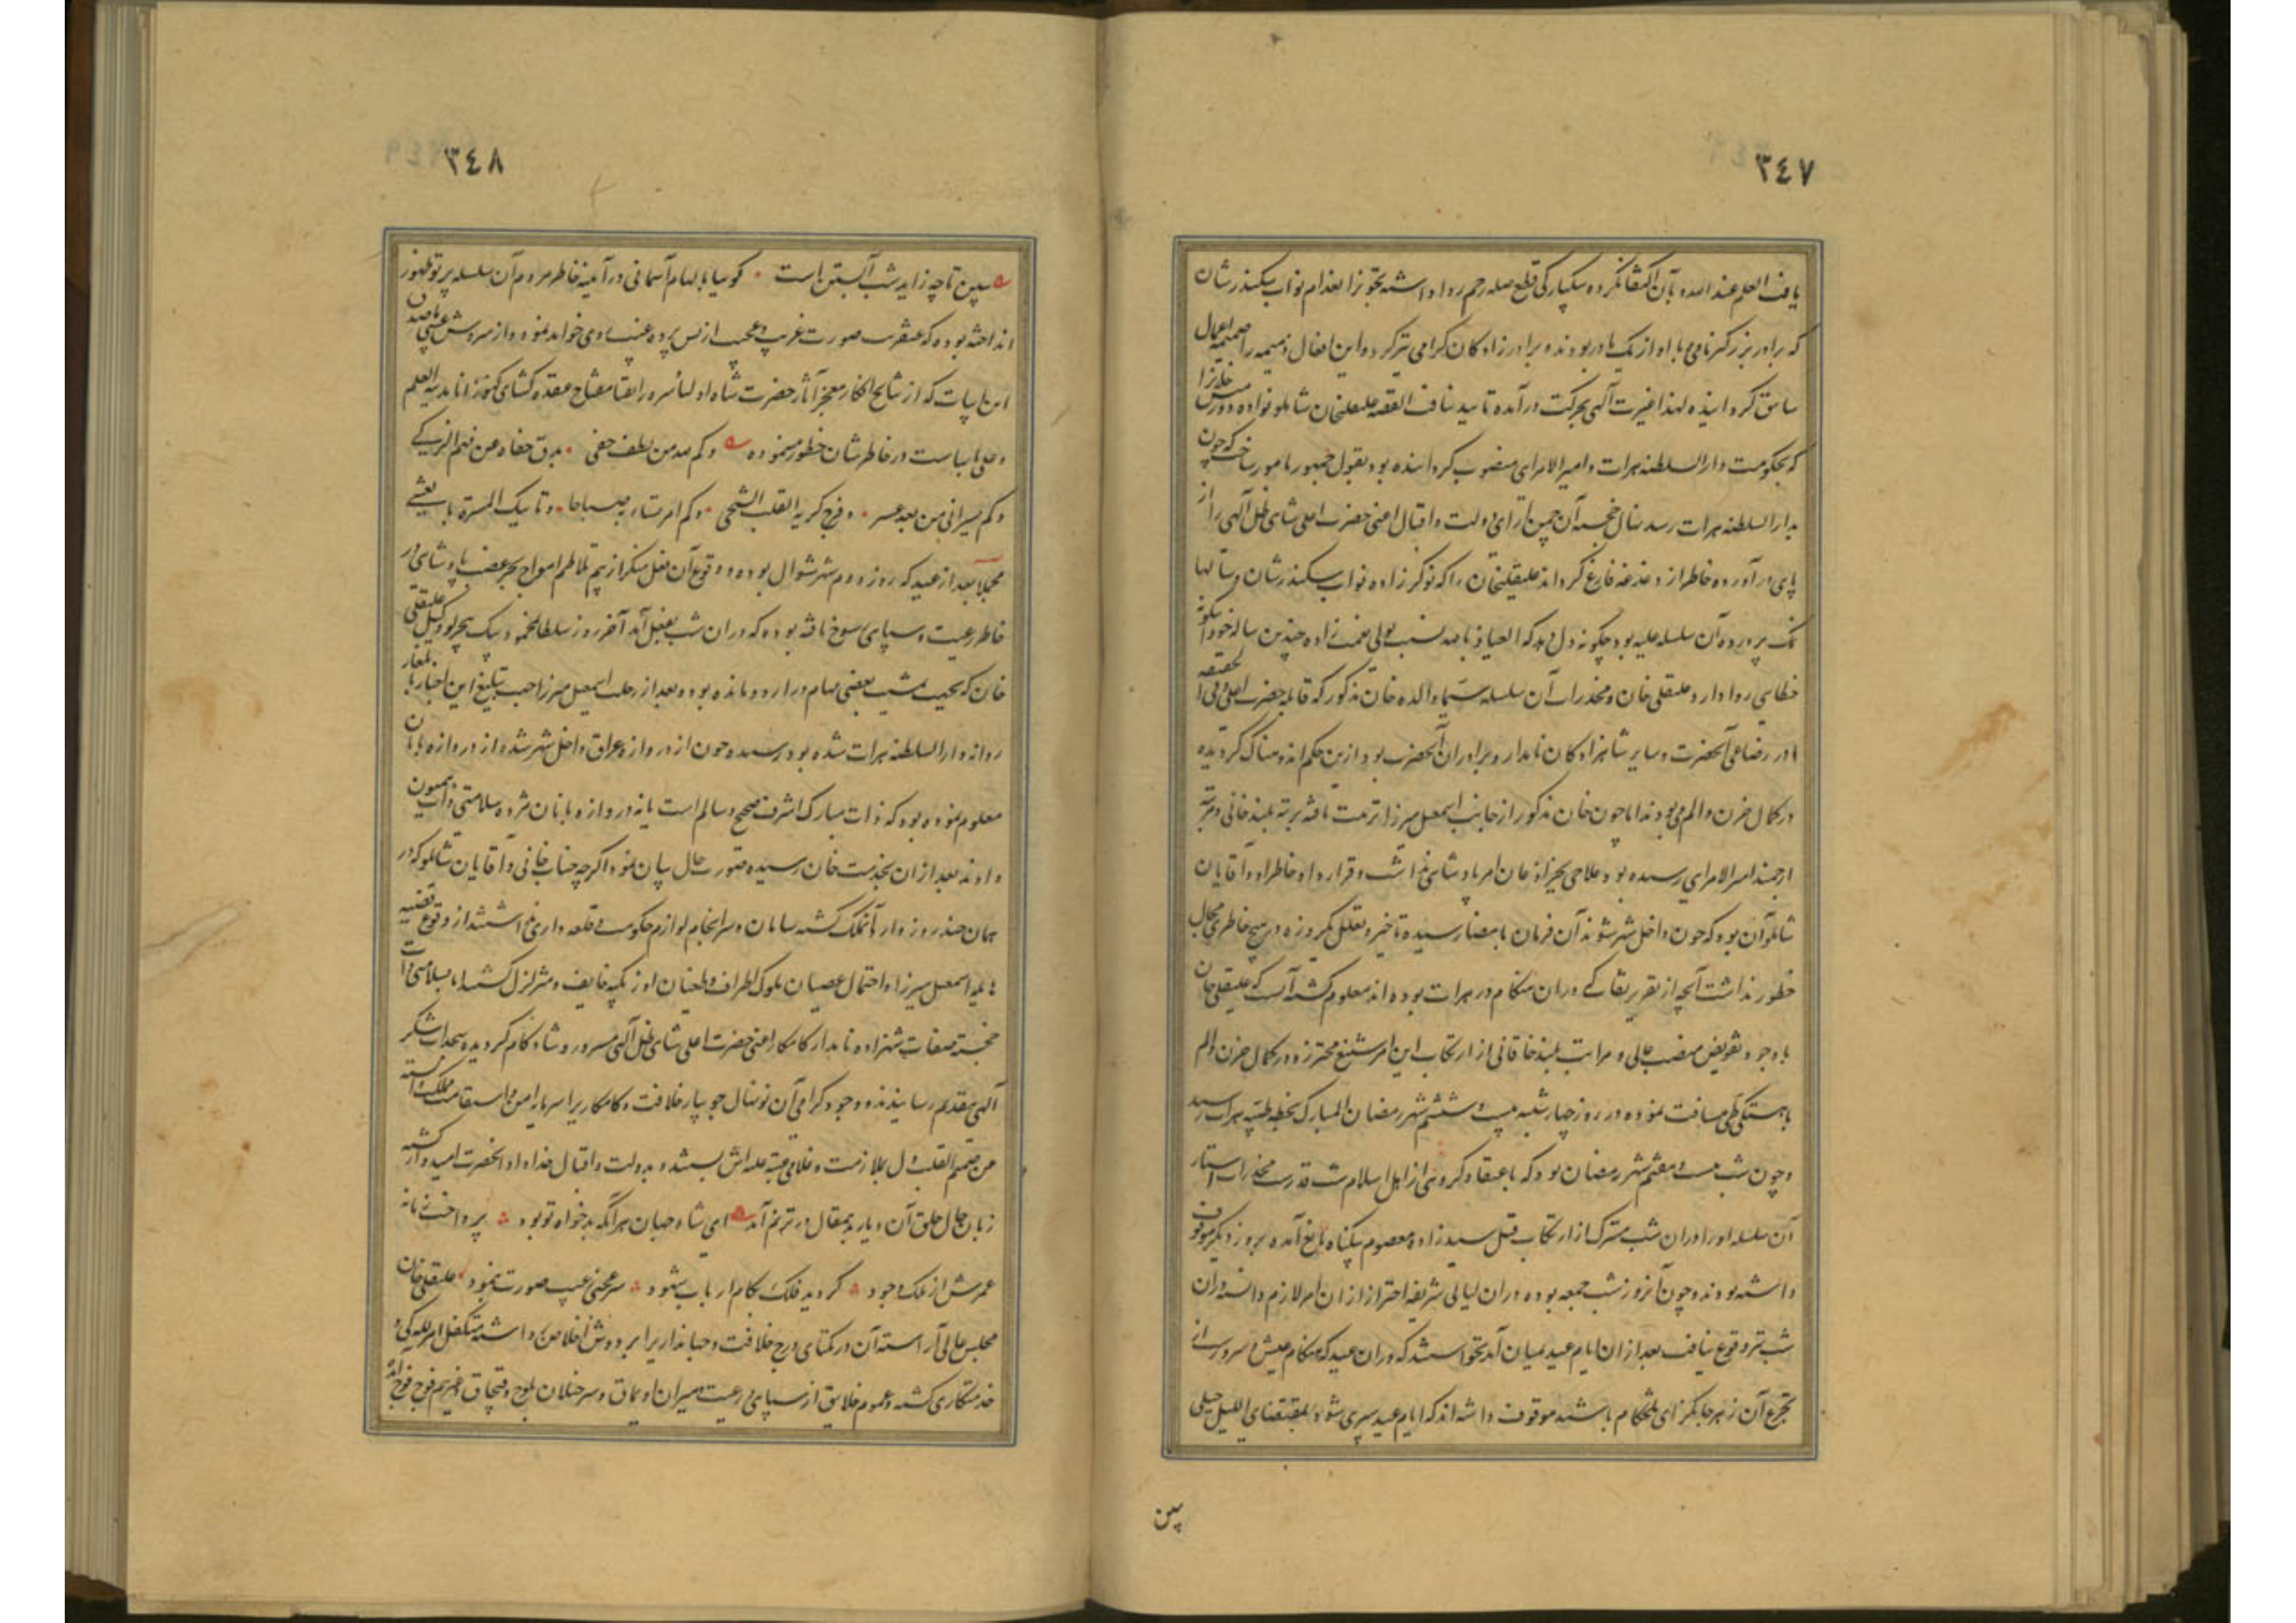 ٣٤٧
یافت العلم عند الله بآن اکتفا نکرده بیکبارکی قطع صله رحم روا داشته تجویز اعدام نواب سکندر شان
که برادر بزرکتر نامی با او از یک مادر بودند و برادر زادکان کرامی نیز کرد و این افعال ذمیمه را ضمیمه اعمال
سابق کردانیده لهذا غیرت آلهی بحرکت درآمده تایید نیافت القصه علیقلیخان شاملو نواده دورمش خانرا
که بحکومت دار السلطنه هرات و امیر الامرای منصوب کردانیده بود بقول جمهور مامور ساخت که چون
بدار السلطنه هرات رسد نهال خجسته آن چمن آرای دولت و اقبال اعنی حضرت اعلی شاهی ظل آلهی را از
پای در آورده خاطر از دغدغه فارغ کرداند علیقلیخان را که نوکر زاده نواب سکندر شان و سالها
نمک پرورده آن سلسله علیه بود چکونه دل دهد که العیاذ بالله نسبت بولی نعمت زاده چندین ساله خود اینکونه
خطائی روا دارد علیقلی خان و مخدرات آن سلسله سیما والده خان مذکور که قابله حضرت اعلی و فی الحقیقه
مادر رضاعی آنحضرت و سایر شاهزادکان نامدار و برادران آنحضرت بود ازین حکم اندوهناک کردیده
در کمال حزن و الم می بودند اما چون خان مذکور از جانب اسمعیل میرزا تربیت یافته برتبه بلند خانی و مرتبه
ارجمند امیر الامرای رسیده بود علاجی بجز اذعان امر پادشاهی نداشت و قرار داد خاطر او و آقایان
شاملو آن بود که چون داخل شهر شوند آن فرمان بامضا رسیده تاخیر و تعلل یکروزه در هیچ خاطری مجال
خطور نداشت آنچه از تقریر ثقات که در ان هنکام در هرات بوده اند معلوم کشته آنست که علیقلی خان
با وجود تفویض منصب عالی و مراتب بلند خاقانی از ارتکاب این امر شنیع محترز و در کمال حزن و الم
باهستکی طی مسافت نموده در روز چهار شنبه بیست و ششم شهر رمضان المبارک بخطه طیبه هرات رسید
و چون شب بیست و هفتم شهر رمضان بود که باعتقاد کروهی از اهل اسلام شب قدرست مخدرات استار
آن سلسله او را در ان شب متبرک از ارتکاب قتل سید زاده معصوم بیکناه مانع آمده بروز دیکر موقوف
داشته بودند و چون آنروز شب جمعه بود و در ان لیالی شریفه احتراز از ان امر لازم دانسته در ان
شب نیز وقوع نیافت بعد از ان ایام عید بمیان آمد نخواستند که در ان عید که هنکام عیش و سرور است
تجرع آن زهر جانکزای تلخکام باشند موقوف داشته اند که ایام عید سپری شود بمقتضای اللیل حبلی
ببین
٣٤٨
ببین تا چه زاید شب آبستن است کوییا بالهام آسمانی در آیینه خاطر مردم آن سلسله پرتو ظهور
انداخته بود که عنقریب صورت غریب و عجیب از پس پرده غیب روی خواهد نمود و از سروش غیبی مضمون
این ابیات که از نتایج افکار معجز آثار حضرت شاه اولیا سرور اتقیا مفتاح عقده کشای کنوز انا مدینة العلم
و علی بابهاست در خاطرشان خطور مینموده و کم لله من لطف خفی یدق خفاه عن فهم الزکی
و کم یسر اتی من بعد عسر و فرج کربة القلب الشجی و کم امر تساء به صباحا و تاتیک المسرة بالعشی
مجملا بعد از عید که روز دوم شهر شوال بوده و وقوع آن فعل منکر از بیم تلاطم امواج بحر غضب پادشاهی در
خاطر رعیت و سپاهی رسوخ یافته بود که در ان شب بفعل آید آخر روز سلطانمحمود بیک بیجرلو وکیل علیقلی
خان که بجهت تمشیت بعضی مهام در اردو مانده بود و بعد از رحلت اسمعیل میرزا جهت تبلیغ این اخبار بایلغار
روانه دار السلطنه هرات شده بود رسیده چون از دروازه عراق داخل شهر شده از دروازه بانان
معلوم نموده بود که ذات مبارک اشرف صحیح و سالم است یا نه دروازه بانان مژده سلامتی ذات همیون
دادند بعد از ان بخدمت خان رسیده صورت حال بیان نمود اکرچه جناب خانی و آقایان شاملو که در
همان چند روز وارد آنملک کشته سامان و سرانجام لوازم حکومت و قلعه داری نداشتند از وقوع قضیه
هایله اسمعیل میرزا و احتمال عصیان ملوک اطراف و طغیان اوزبکیه خایف و متزلزل کشتند اما بسلامتی ذات
خجسته صفات شهزاده نامدار کامکار اعنی حضرت اعلی شاهی ظل آلهی مسرور و شاد کام کردیده سجدات شکر
آلهی بتقدیم رسانیدند و وجود کرامی آن نونهال جویبار خلافت و کامکاریرا سرمایه امن و استقامت مملکت دانسته
من صمیم القلب دل بملازمت و غلامی عتبه علیه اش بستند و بدولت و اقبال خداداد آنحضرت امیدوار کشته
زبان حال خلق آن دیار بدینمقال در ترنم آمد ای شاه جهان هر آنکه بدخواه تو بود پرداخت زمانه
عمرش از ملک وجود کردید فلک بکام ارباب شهود سر عجبی عیب صورت بنمود علیقلی خان
مجلس عالی آراسته آن در یکتای درج خلافت و جهانداریرا بر دوش اخلاص داشته متکفل امر للکی و
خدمتکاری کشته و عموم خلایق از سپاهی و رعیت و میران اویماق و سرخیلان بلوچ و قپچاق و غیرهم فوج فوج آمده